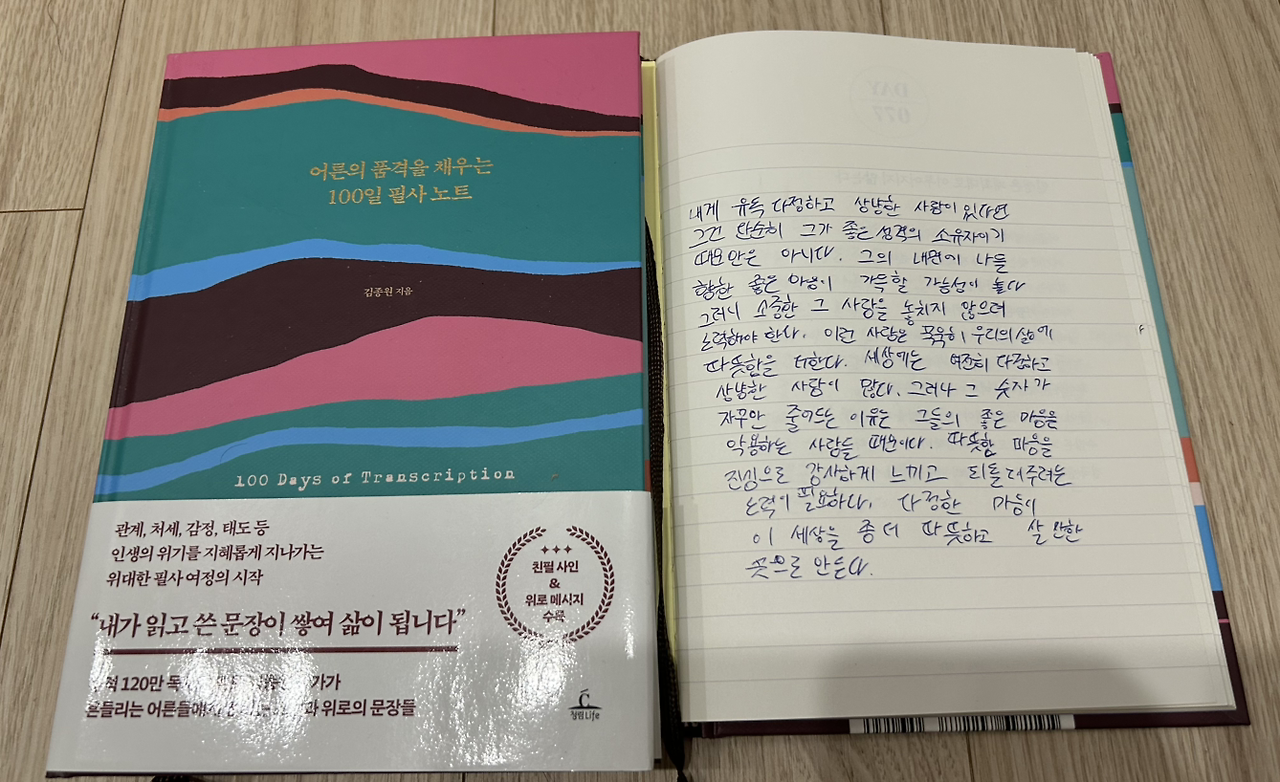 어른의 품격을 채우는
100일 필사 노트
김종원 지음
100 Days of Transcription
관계, 처세, 감정, 태도 등
인생의 위기를 지혜롭게 지나가는
위대한 필사 여정의 시작
“내가 읽고 쓴 문장이 쌓여 삶이 됩니다”
120만
흔들리는 어른들에게 위로의 문장들
친필 사인
&
위로 메시지
수록
청림Life
DAY
077
내게 유독 다정하고 상냥한 사람이 있다면
그건 단순히 그가 좋은 성격의 소유자이기
때문만은 아니다. 그의 내면에 나를
향한 좋은 마음이 가득할 가능성이 높다
그러니 소중한 그 사람을 놓치지 않으려
노력해야 한다. 이런 사람은 묵묵히 우리의 삶에
따뜻함을 더한다. 세상에는 여전히 다정하고
상냥한 사람이 많다. 그러나 그 숫자가
자꾸만 줄어드는 이유는 그들의 좋은 마음을
악용하는 사람들 때문이다. 따뜻한 마음을
진심으로 감사하게 느끼고 되돌려주려는
노력이 필요하다. 다정한 마음이
이 세상을 좀 더 따뜻하고 살 만한
곳으로 만든다.